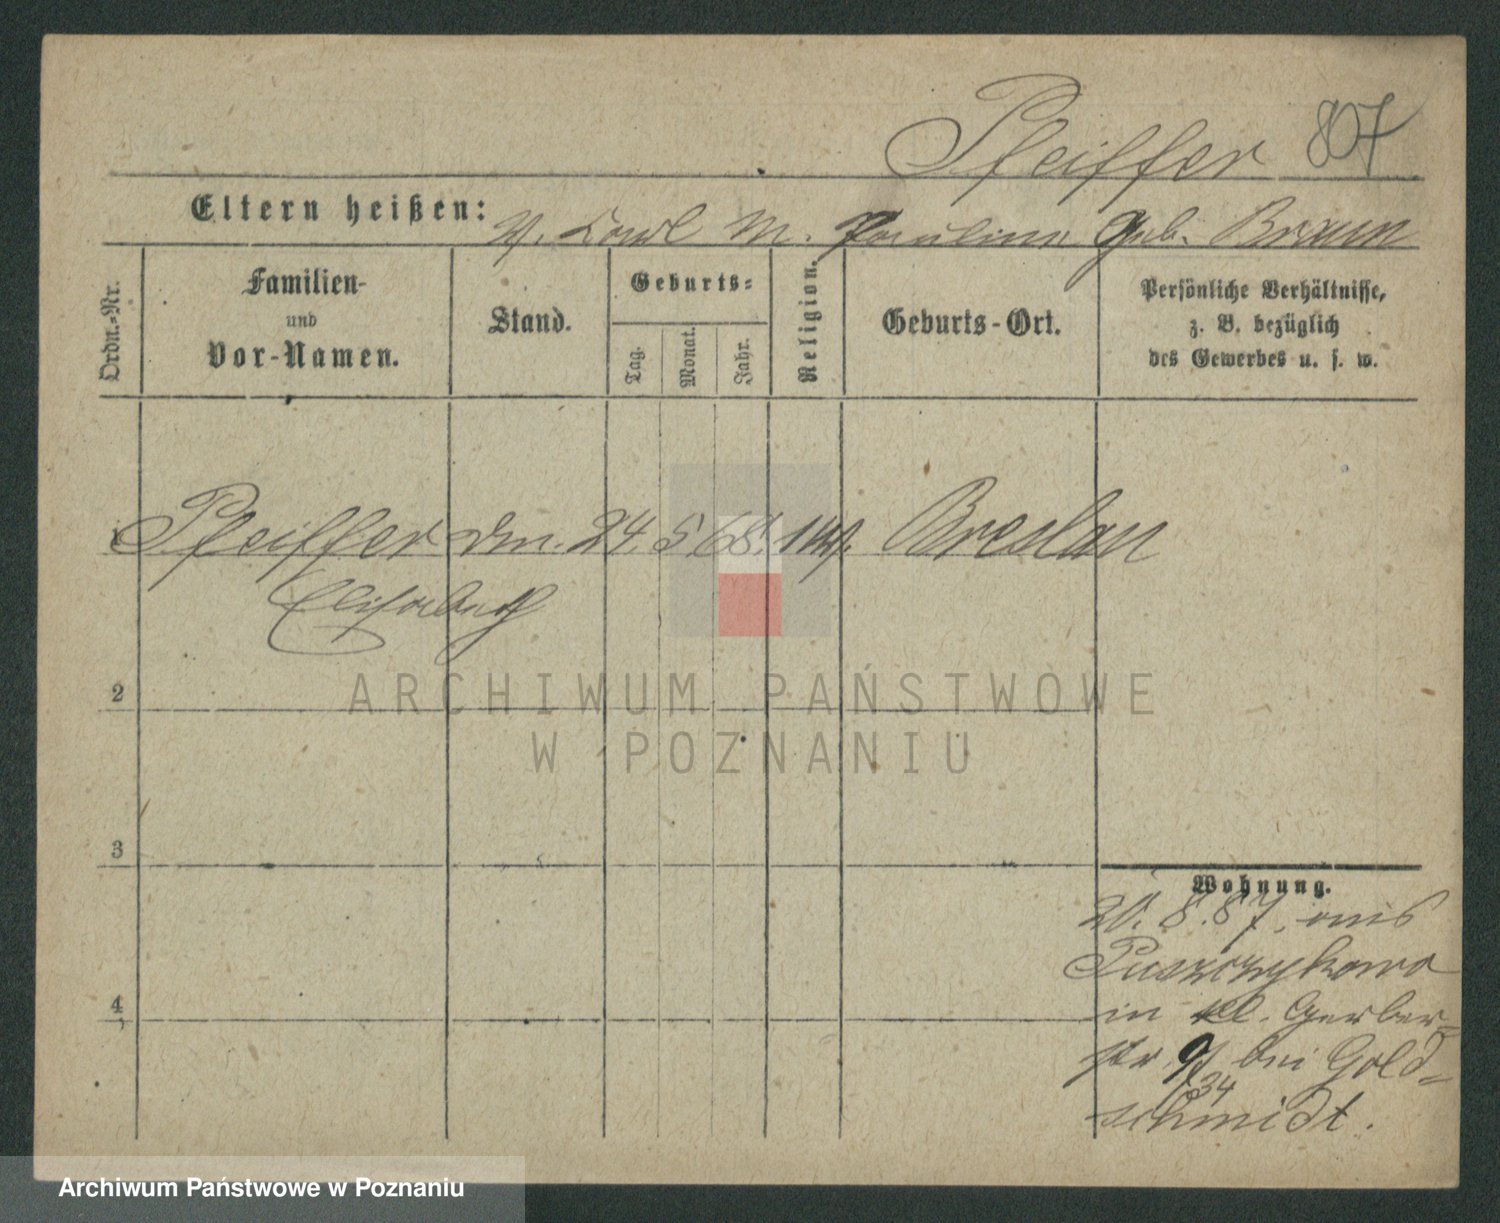 Pfeiffer 807
Eltern heißen: V. Carl M. Pauline geb. Braun
Ordn.-Nr.
Familien-
und
Vor-Namen.
Stand.
Geburts-
Tag.
Monat.
Jahr.
Religion.
Geburts-Ort.
Persönliche Verhältnisse,
z. B. bezüglich
des Gewerbes u. s. w.
1 Pfeiffer 24. 5. 68. Breslau
Elisabeth
ARCHIWUM PAŃSTWOWE
W POZNANIU
2
3
4
Wohnung.
20. 8. 87. aus
Puszczykowo
in kl. Gerber-
str. bei Gold-
34
schmidt.
Archiwum Państwowe w Poznaniu